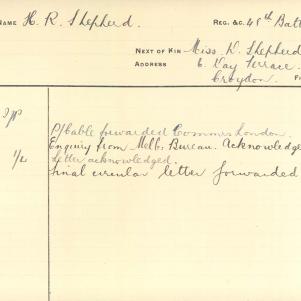 NAME H. R. Shepherd. REG. &C. 48th Batt
NEXT OF KIN Miss. D. Shepherd
ADDRESS 6. Day Terrace.
Croydon.
P/Cable forwarded Commrs London.
Enquiry from Melb. Bureau. Acknowledge
Letter acknowledged.
Final circular letter forwarded